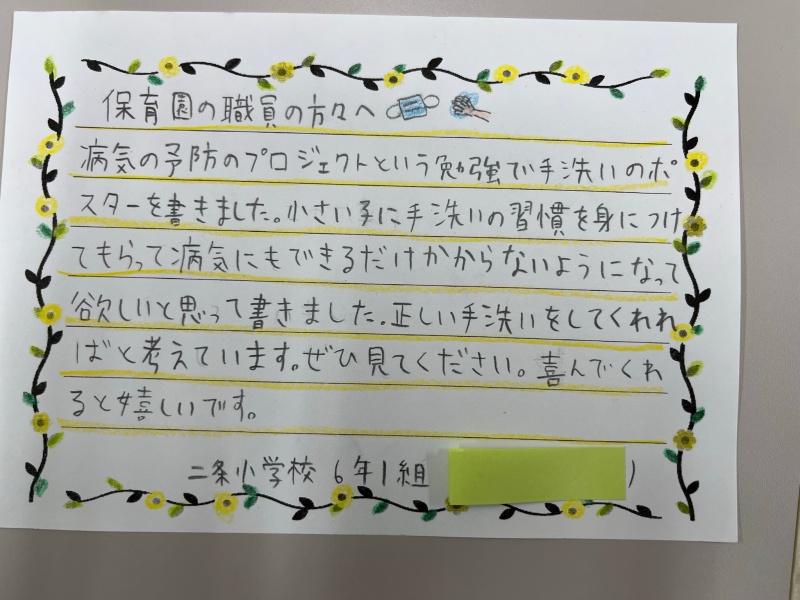 保育園の職員の方々へ
病気の予防のプロジェクトという勉強で手洗いのポ
スターを書きました。小さい子に手洗いの習慣を身につけ
てもらって病気にもできるだけかからないようになって
欲しいと思って書きました。正しい手洗いをしてくれれ
ばと考えています。ぜひ見てください。喜んでくれ
ると嬉しいです。
二条小学校 6年1組 )